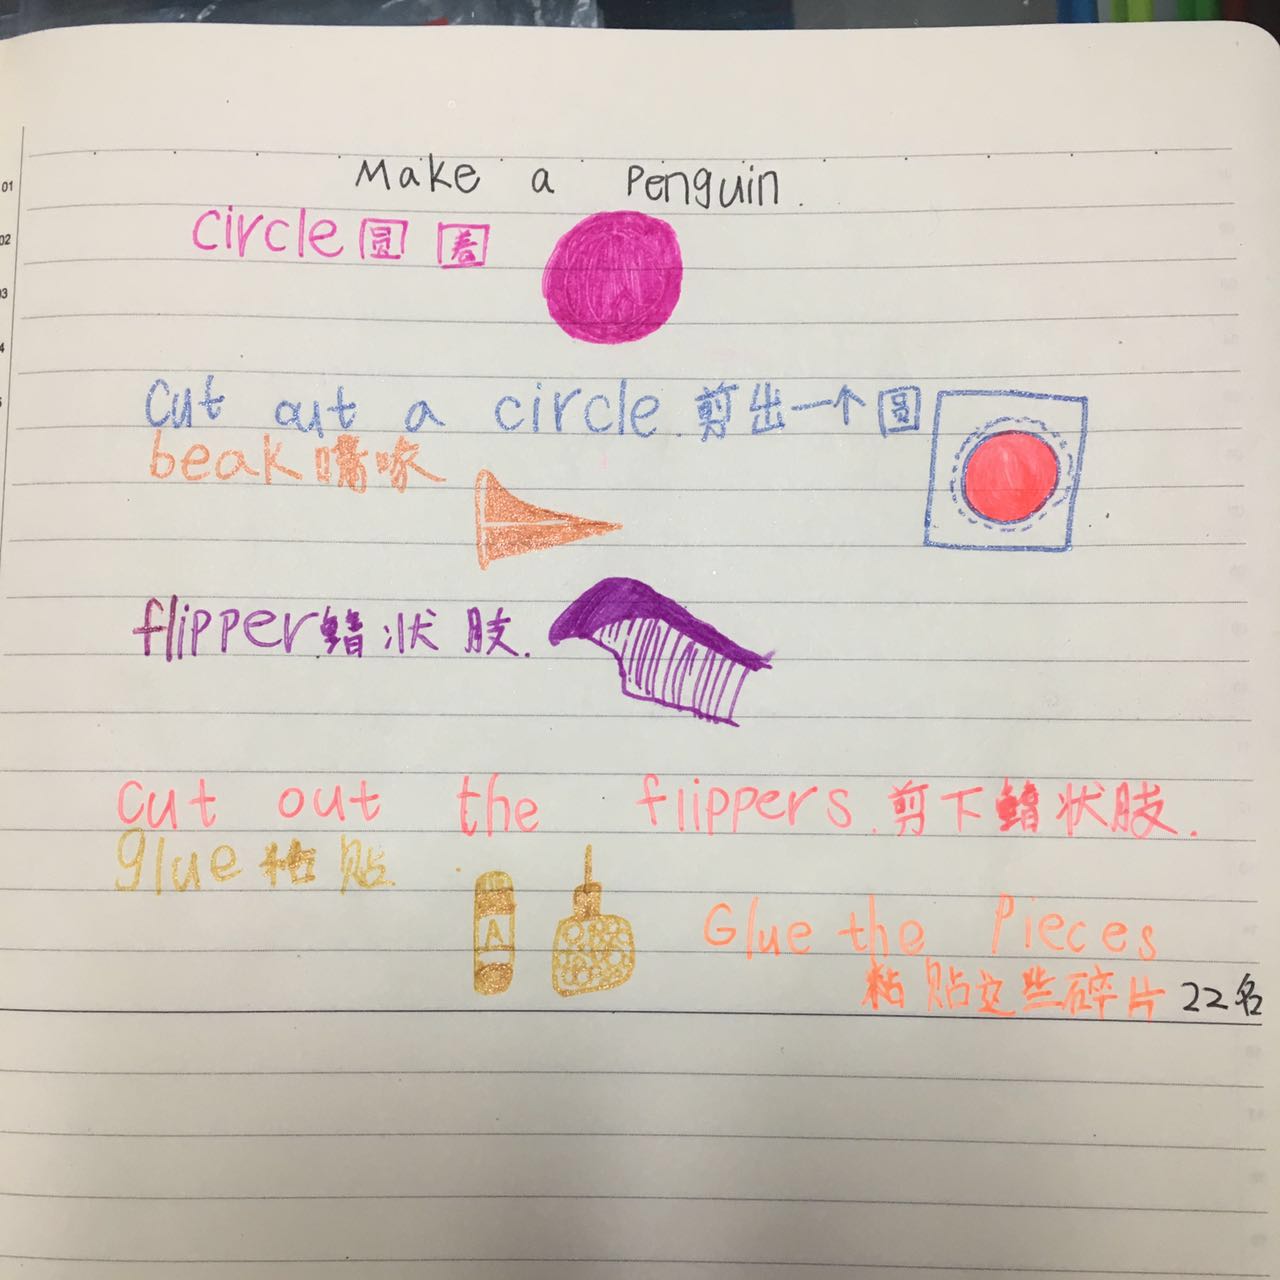 01
Make a Penguin.
02
circle 圆圈
03
4
cut out a circle. 剪出一个圆
beak 嘴喙
flipper 鳍状肢.
cut out the flippers. 剪下鳍状肢.
glue 粘贴
A
Glue the Pieces
粘贴这些碎片 22名